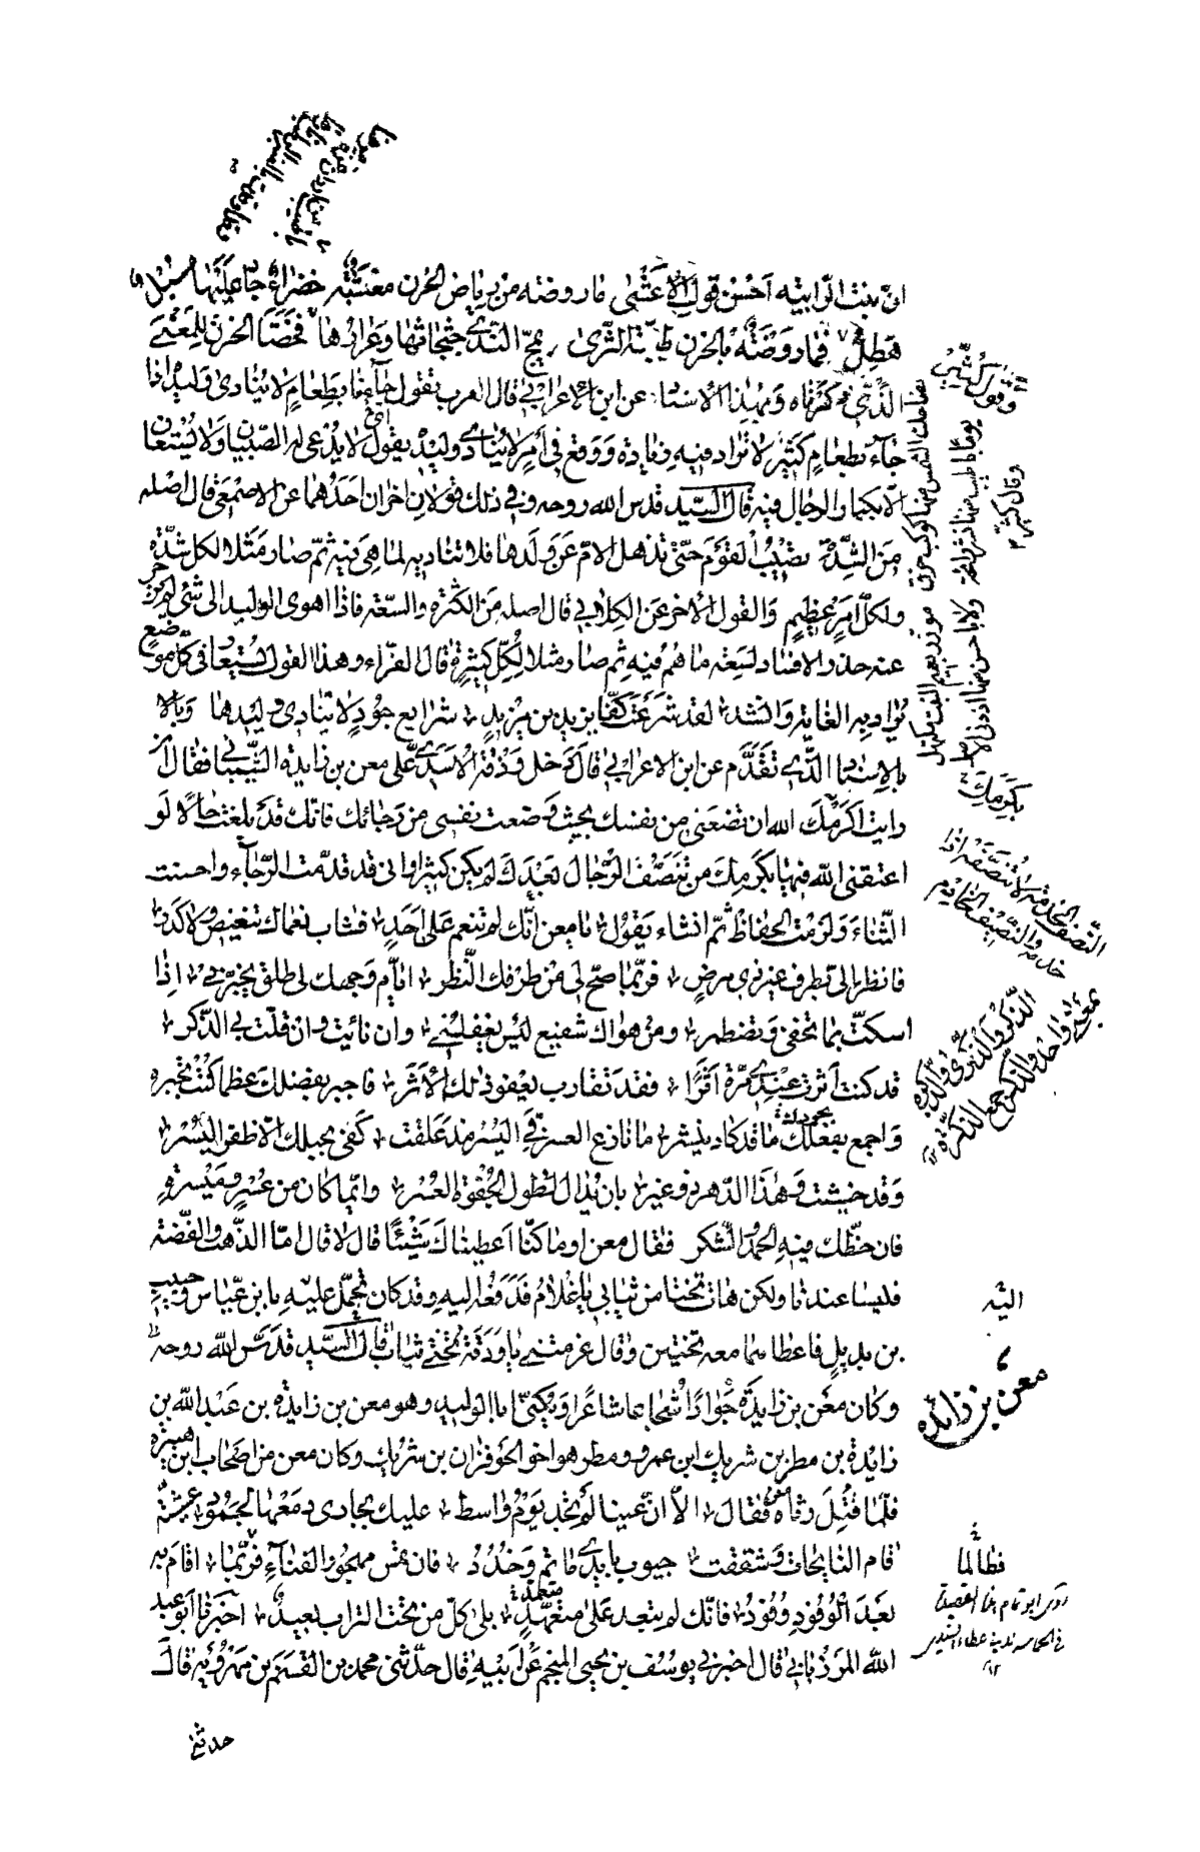 انّ بنت الرابية احسن قول الاعشى ما روضة من رياض الحزن معشبة خضراء جاد عليها مسبل
هطل فما روضة بالحزن طيبة الثرى يمج الندى جثجاثها وعرارها فخصا الحزن للمعنى
الذي ذكرناه وبهذا الاسناد عن ابن الاعرابي قال العرب تقول جاءنا بطعام لا ينادى وليده اذا
جاء بطعام كثير لا يراد فيه زيادة ووقع في امر لا ينادى وليده يقول لا يدعى له الصبيان ولا يستعان
الا بكبار الرجال فيه قال السيد قدس الله روحه وفي ذلك قولان اخران احدهما عن الاصمعي قال اصله
من الشدة تصيب القوم حتى تذهل الام عن ولدها فلا تناديه لما هي فيه ثم صار مثلا لكل شدة
ولكل امر عظيم والقول الاخر عن الكلابي قال اصله من الكثرة والسعة فاذا اهوى الوليد الى شئ لم يزجر
عنه حذر الافساد لسعة ما هم فيه ثم صار مثلا لكل كثيرة قال الفراء وهذا القول يستعار في كل موضع
يراد به الغاية وانشد لقد شرعت كفا يزيد بن مزيد شرايع جود لا ينادى وليدها وبالا
بالاسناد الذي تقدم عن ابن الاعرابي قال دخل ودقة الاسدي على معن بن زايدة الشيباني فقال ان
رايت اكرمك الله ان تضعني من نفسك بحيث وضعت نفسي من رجائك فانك قد بلغت حالا لو
اعتقني الله فيها بكرمك من تنصف الرجال بعدك لم يكن كثيرا واني قد قدمت الرجاء واحسنت
الثناء ولزمت الحفاظ ثم انشاء يقول يا معن انك لم تنعم على احد فشاب نعماك تنغيص ولا كدر
فانظر الى بطرف غير ذي مرض فربما صح لي من طرفك النظر ايام وجهك لي طلق يخبرني اذا
سكت بما تخفي وتضطمر ومن هواك شفيع ليس يغفلني وان نائيت وان قلت بي الذكر
قد كنت اثرت عندي مرة اثرا فقد تقارب يعفو ذلك الاثر فاجبر بفضلك عظما كنت تجبره
واجمع بفعلك ما قد كاد ينتشر ما نازع العسر في اليسر مذ علقت كفي بحبلك الا ظفر اليسر
وقد خشيت وهذا الدهر ذو غير بان يدال لطول الجفوة العسر وانما كان من عسر وميسرة
فان حظك منه الحمد والشكر فقال معن اوما كنا اعطيناك شيئا قال لا قال اما الذهب والفضة
فليسا عندنا ولكن هات تختا من ثيابي يا غلام فدفعه اليه وقد كان تحمل عليه بابن عباس وحبيب
بن بديل فاعطاهما معه تختين وقال غرمتني يا ودقة تختي ثياب قال السيد قدس الله روحه
وكان معن بن زايدة جوادا شجاعا شاعرا ويكنى ابا الوليد وهو معن بن زايدة بن عبد الله بن
زايدة بن مطر بن شريك ابن عمرو ومطر هو اخو الحوفزان بن شريك وكان معن من اصحاب ابن هبيرة
فلما قتل رثاه فقال الا ان عينا لم تجد يوم واسط عليك بجاري دمعها لجمود عشية
قام النايحات وشققت جيوب بايدي ماتم وخدود فان تمس مهجور الفناء فربما اقام به
بعد الوفود وفود فانك لم تبعد على متعهد بلى كل من تحت التراب بعيد اخبرنا ابو عبيد
الله المرزباني قال اخبرني يوسف بن يحيى المنجم عن ابيه قال حدثني محمد بن القسم بن مهرويه قال
حدثني
وقال كثير
بكرمك
التنصف الخدمة
اليه
معن بن زائده
فطالما